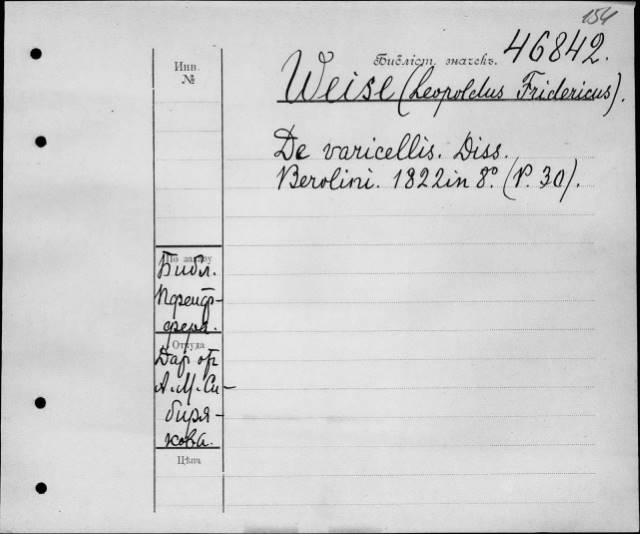 154
Инв.
№
Библіот. значекъ. 46842.
Weise (Leopoldus Fridericus).
De varicellis. Diss.
Berolini. 1822 in 8.° (P. 30).
По заказу
Библ.
Пфейф-
фера.
Откуда
Дар от
А. М. Си-
биря-
кова.
Цѣна